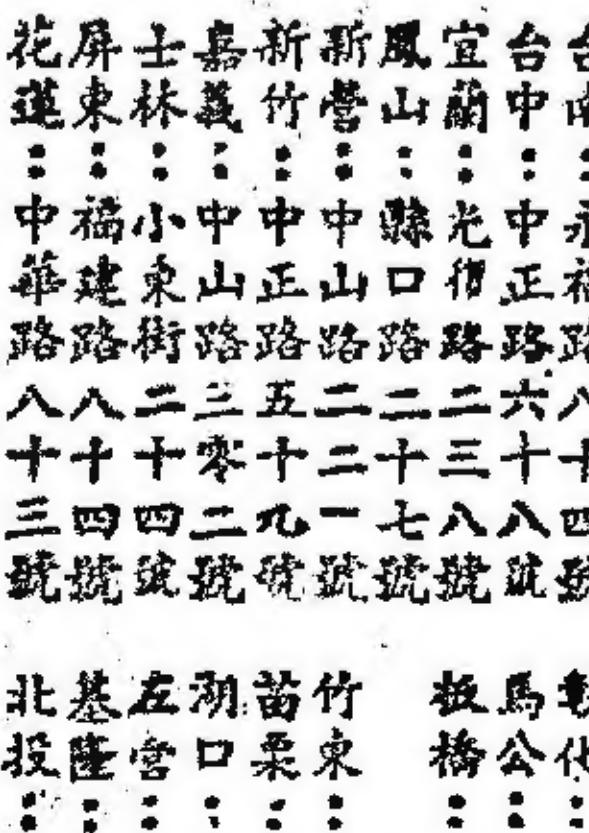 台南：永福路八十四號
台中：中正路六十八號
宜蘭：光復路二三八號
鳳山：縣口路二十七號
新營：中山路二二一號
新竹：中正路五十九號
嘉義：中山路三零二號
士林：小東街二十四號
屏東：福建路八十四號
花蓮：中華路八十三號
彰化：
馬公：
板橋：
竹東：
苗栗：
湖口：
左營：
基隆：
北投：